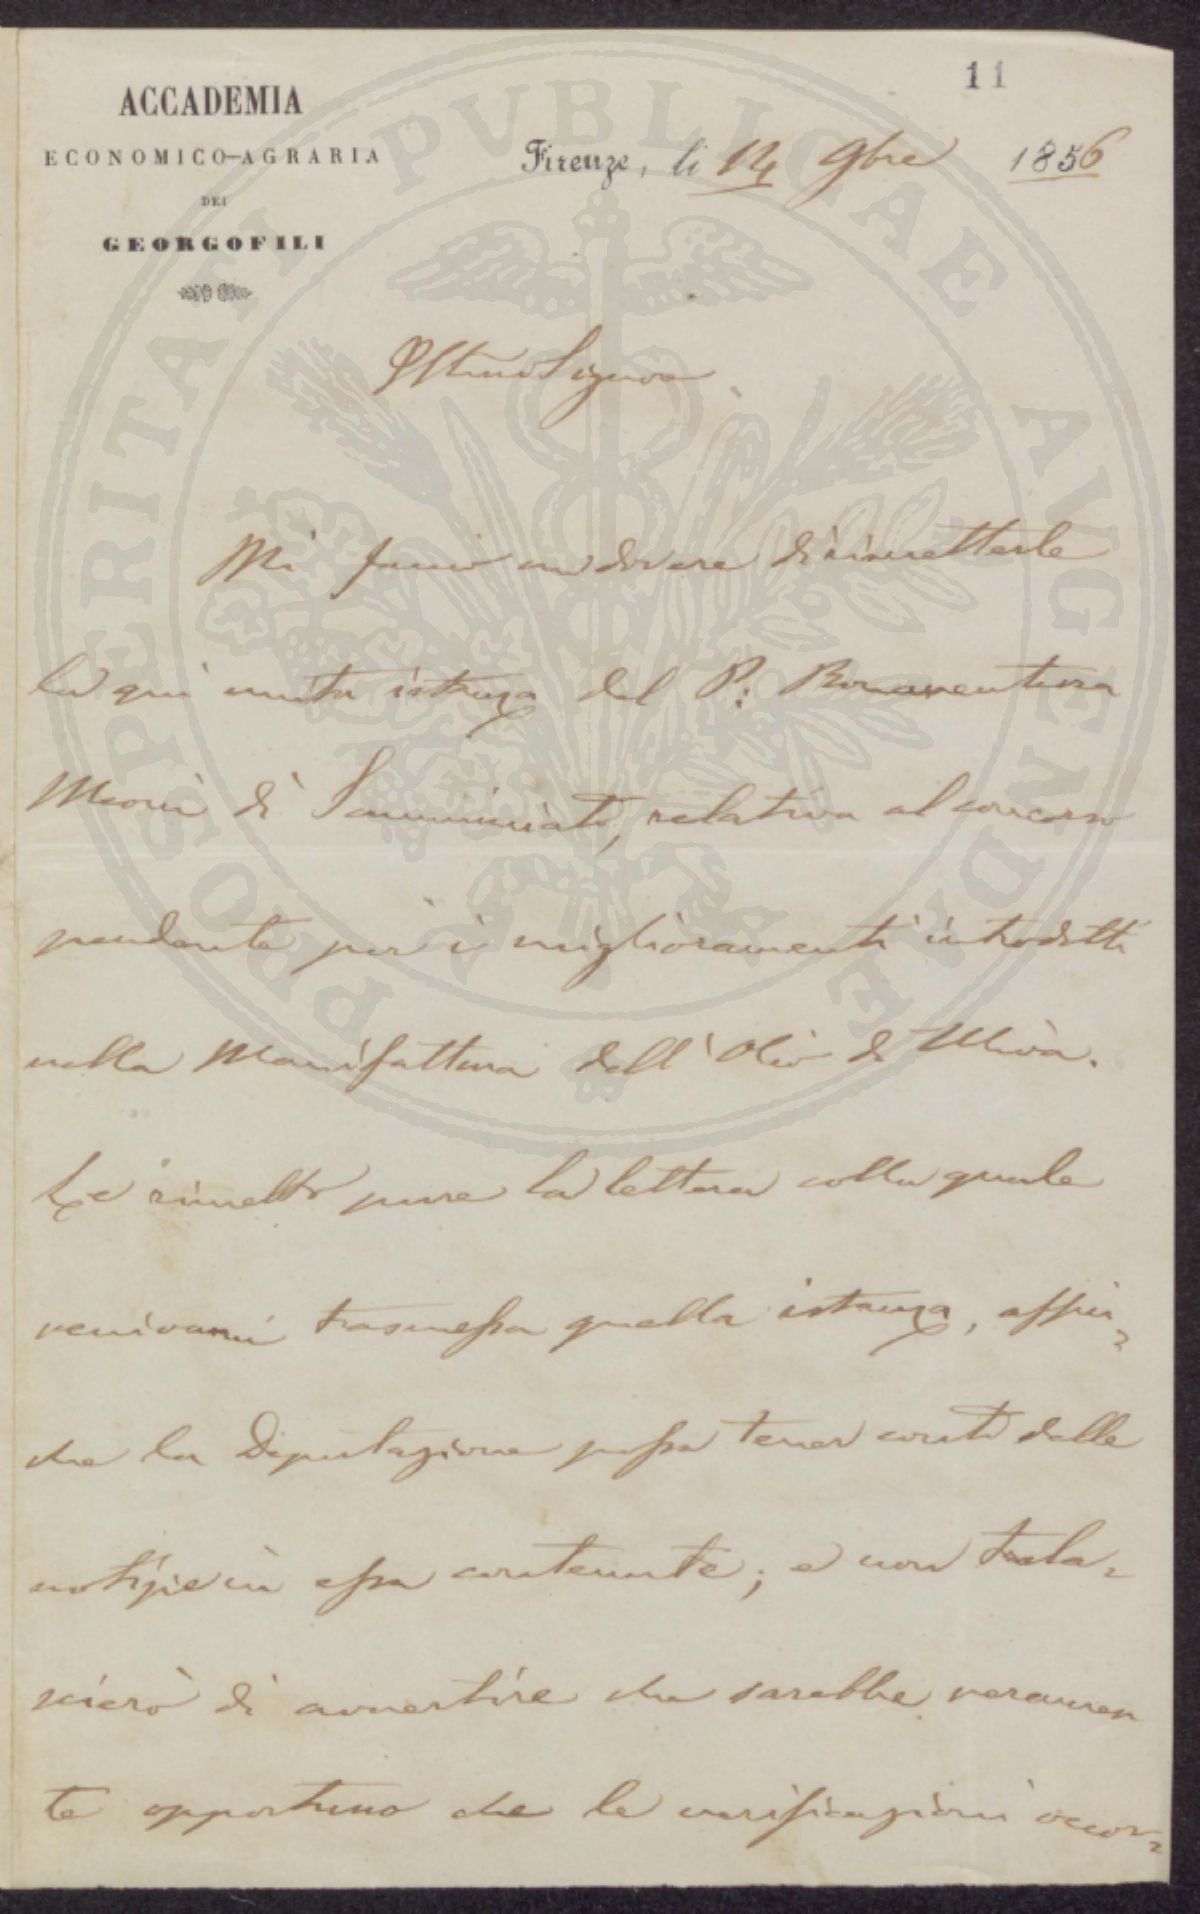 11
ACCADEMIA
ECONOMICO-AGRARIA
DEI
GEORGOFILI
Firenze, li 14 9bre 1856
Illmo Signore
Mi faccio un dovere di rimetterle
la qui unita istanza del P: Bonaventura
Meoni di Samminiato, relativa al concorso
pendente per i miglioramenti introdotti
nella Manifattura dell'Olio di Uliva.
Le rimetto pure la lettera colla quale
venivami trasmessa quella istanza, affin=
che la Deputazione possa tener conto delle
notizie in essa contenute; e non trala=
scierò di avvertire che sarebbe veramen
te opportuno che le verificazioni occor=
PROSPERITATI PVBLICAE AVGENDAE